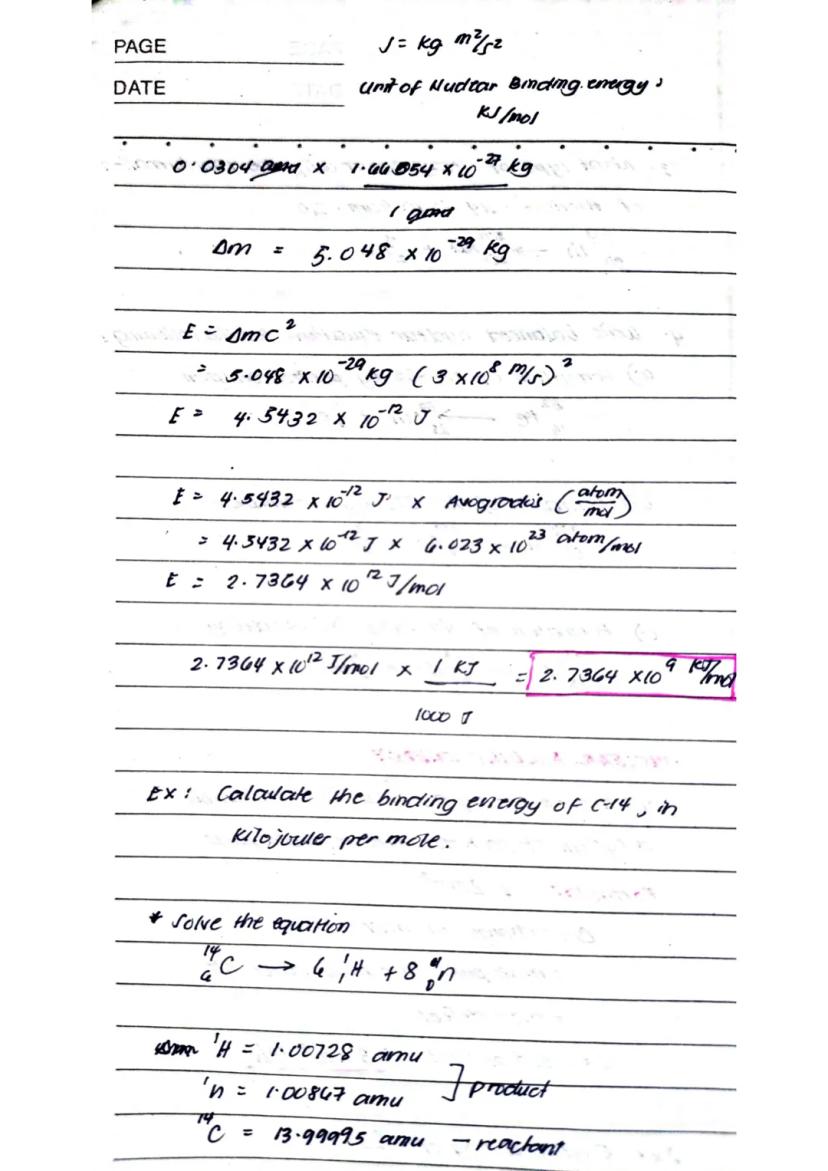 PAGE
J = kg m²/s²
DATE
unit of Nuclear Binding energy :
KJ/mol
0.0304 amu x 1.66054 x 10⁻²⁷ kg
1 amu
Δm = 5.048 x 10⁻²⁹ kg
E = Δmc²
= 5.048 x 10⁻²⁹ kg ( 3 x 10⁸ m/s )²
E = 4.5432 x 10⁻¹² J
E = 4.5432 x 10⁻¹² J x Avogrado's (atom/mol)
= 4.5432 x 10⁻¹² J x 6.023 x 10²³ atom/mol
E = 2.7364 x 10¹² J/mol
2.7364 x 10¹² J/mol x 1 KJ = 2.7364 x 10⁹ KJ/mol
1000 J
EX : Calculate the binding energy of C-14, in
Kilojoules per mole.
* Solve the equation
¹⁴₆C → 6 ¹₁H + 8 ¹₀n
¹H = 1.00728 amu
¹n = 1.00867 amu ] product
¹⁴C = 13.99995 amu — reactant